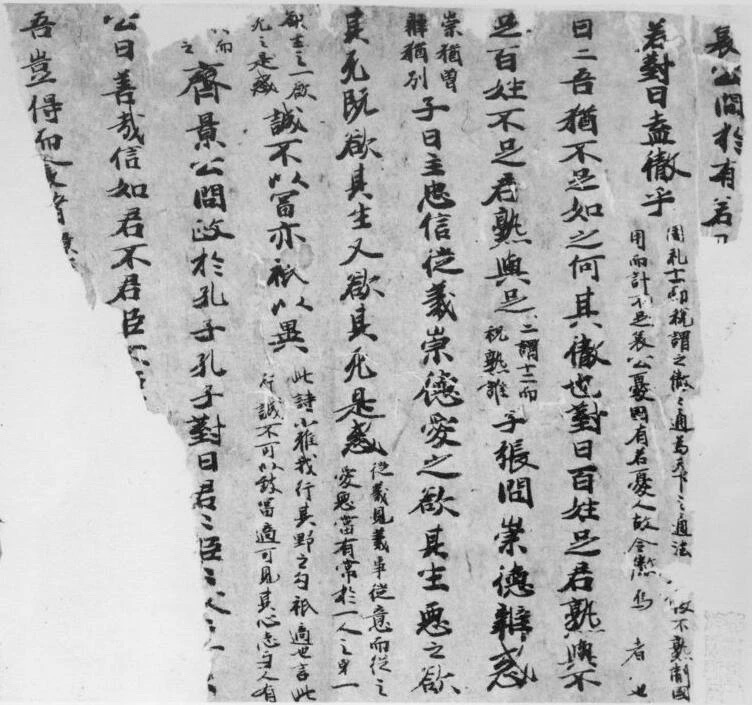 哀公問於有若
若對曰盍徹乎
周礼十一而税謂之徹〻通為天下之通法
收不熟削國
用而計不足哀公憂國有若憂人故令徹焉 者也
曰二吾猶不足如之何其徹也對曰百姓足君熟與不
足百姓不足君熟與足
二謂十二而
税熟誰
子張問崇德辯惑
崇猶曾
辯猶別
子曰主忠信從義崇德愛之欲其生惡之欲
其死既欲其生又欲其死是惑
從義見義事從意而從之
愛惡當有常於一人之身一
欲生之一欲
死之是惑
誠不以冨亦祇以異
此詩小雅我行其野之句祇適也言此
行誠不可以致富適可見其心志与人有
以而
之
齊景公問政於孔子孔子對曰君〻臣〻父〻
公曰善哉信如君不君臣不
吾豈得而食諸